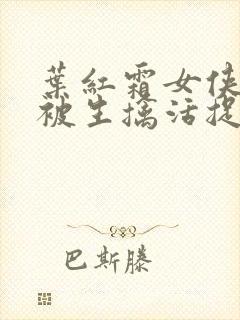 葉紅霜女俠
被生擒活捉
巴斯滕